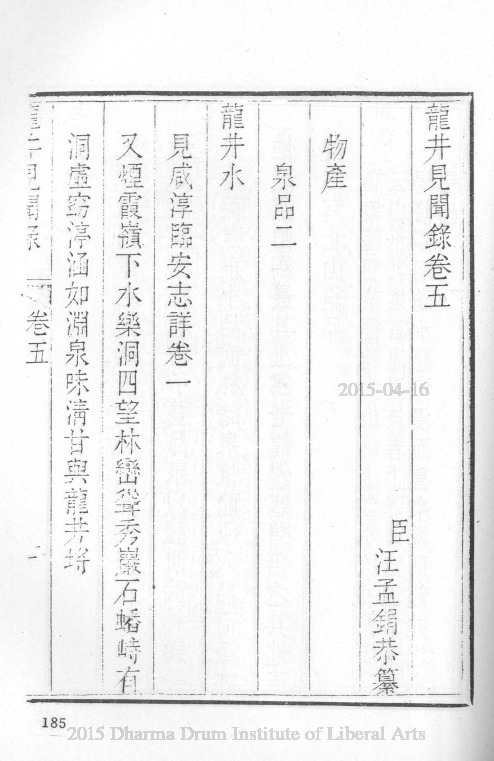 龍井見聞錄卷五
臣汪孟鋗恭纂
物產
泉品二
龍井水
見咸淳臨安志詳卷一
又煙霞嶺下水樂洞四望林巒聳秀巖石蟠峙有
洞虛窈渟涵如淵泉味清甘與龍井埒
龍井見聞錄
卷五
一
185
2015-04-16
2015 Dharma Drum Institute of Liberal Arts